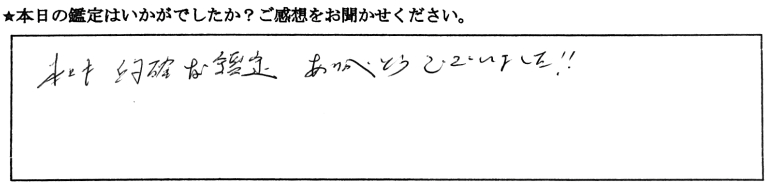 ★本日の鑑定はいかがでしたか？ご感想をお聞かせください。
的確な鑑定 ありがとうございました!!